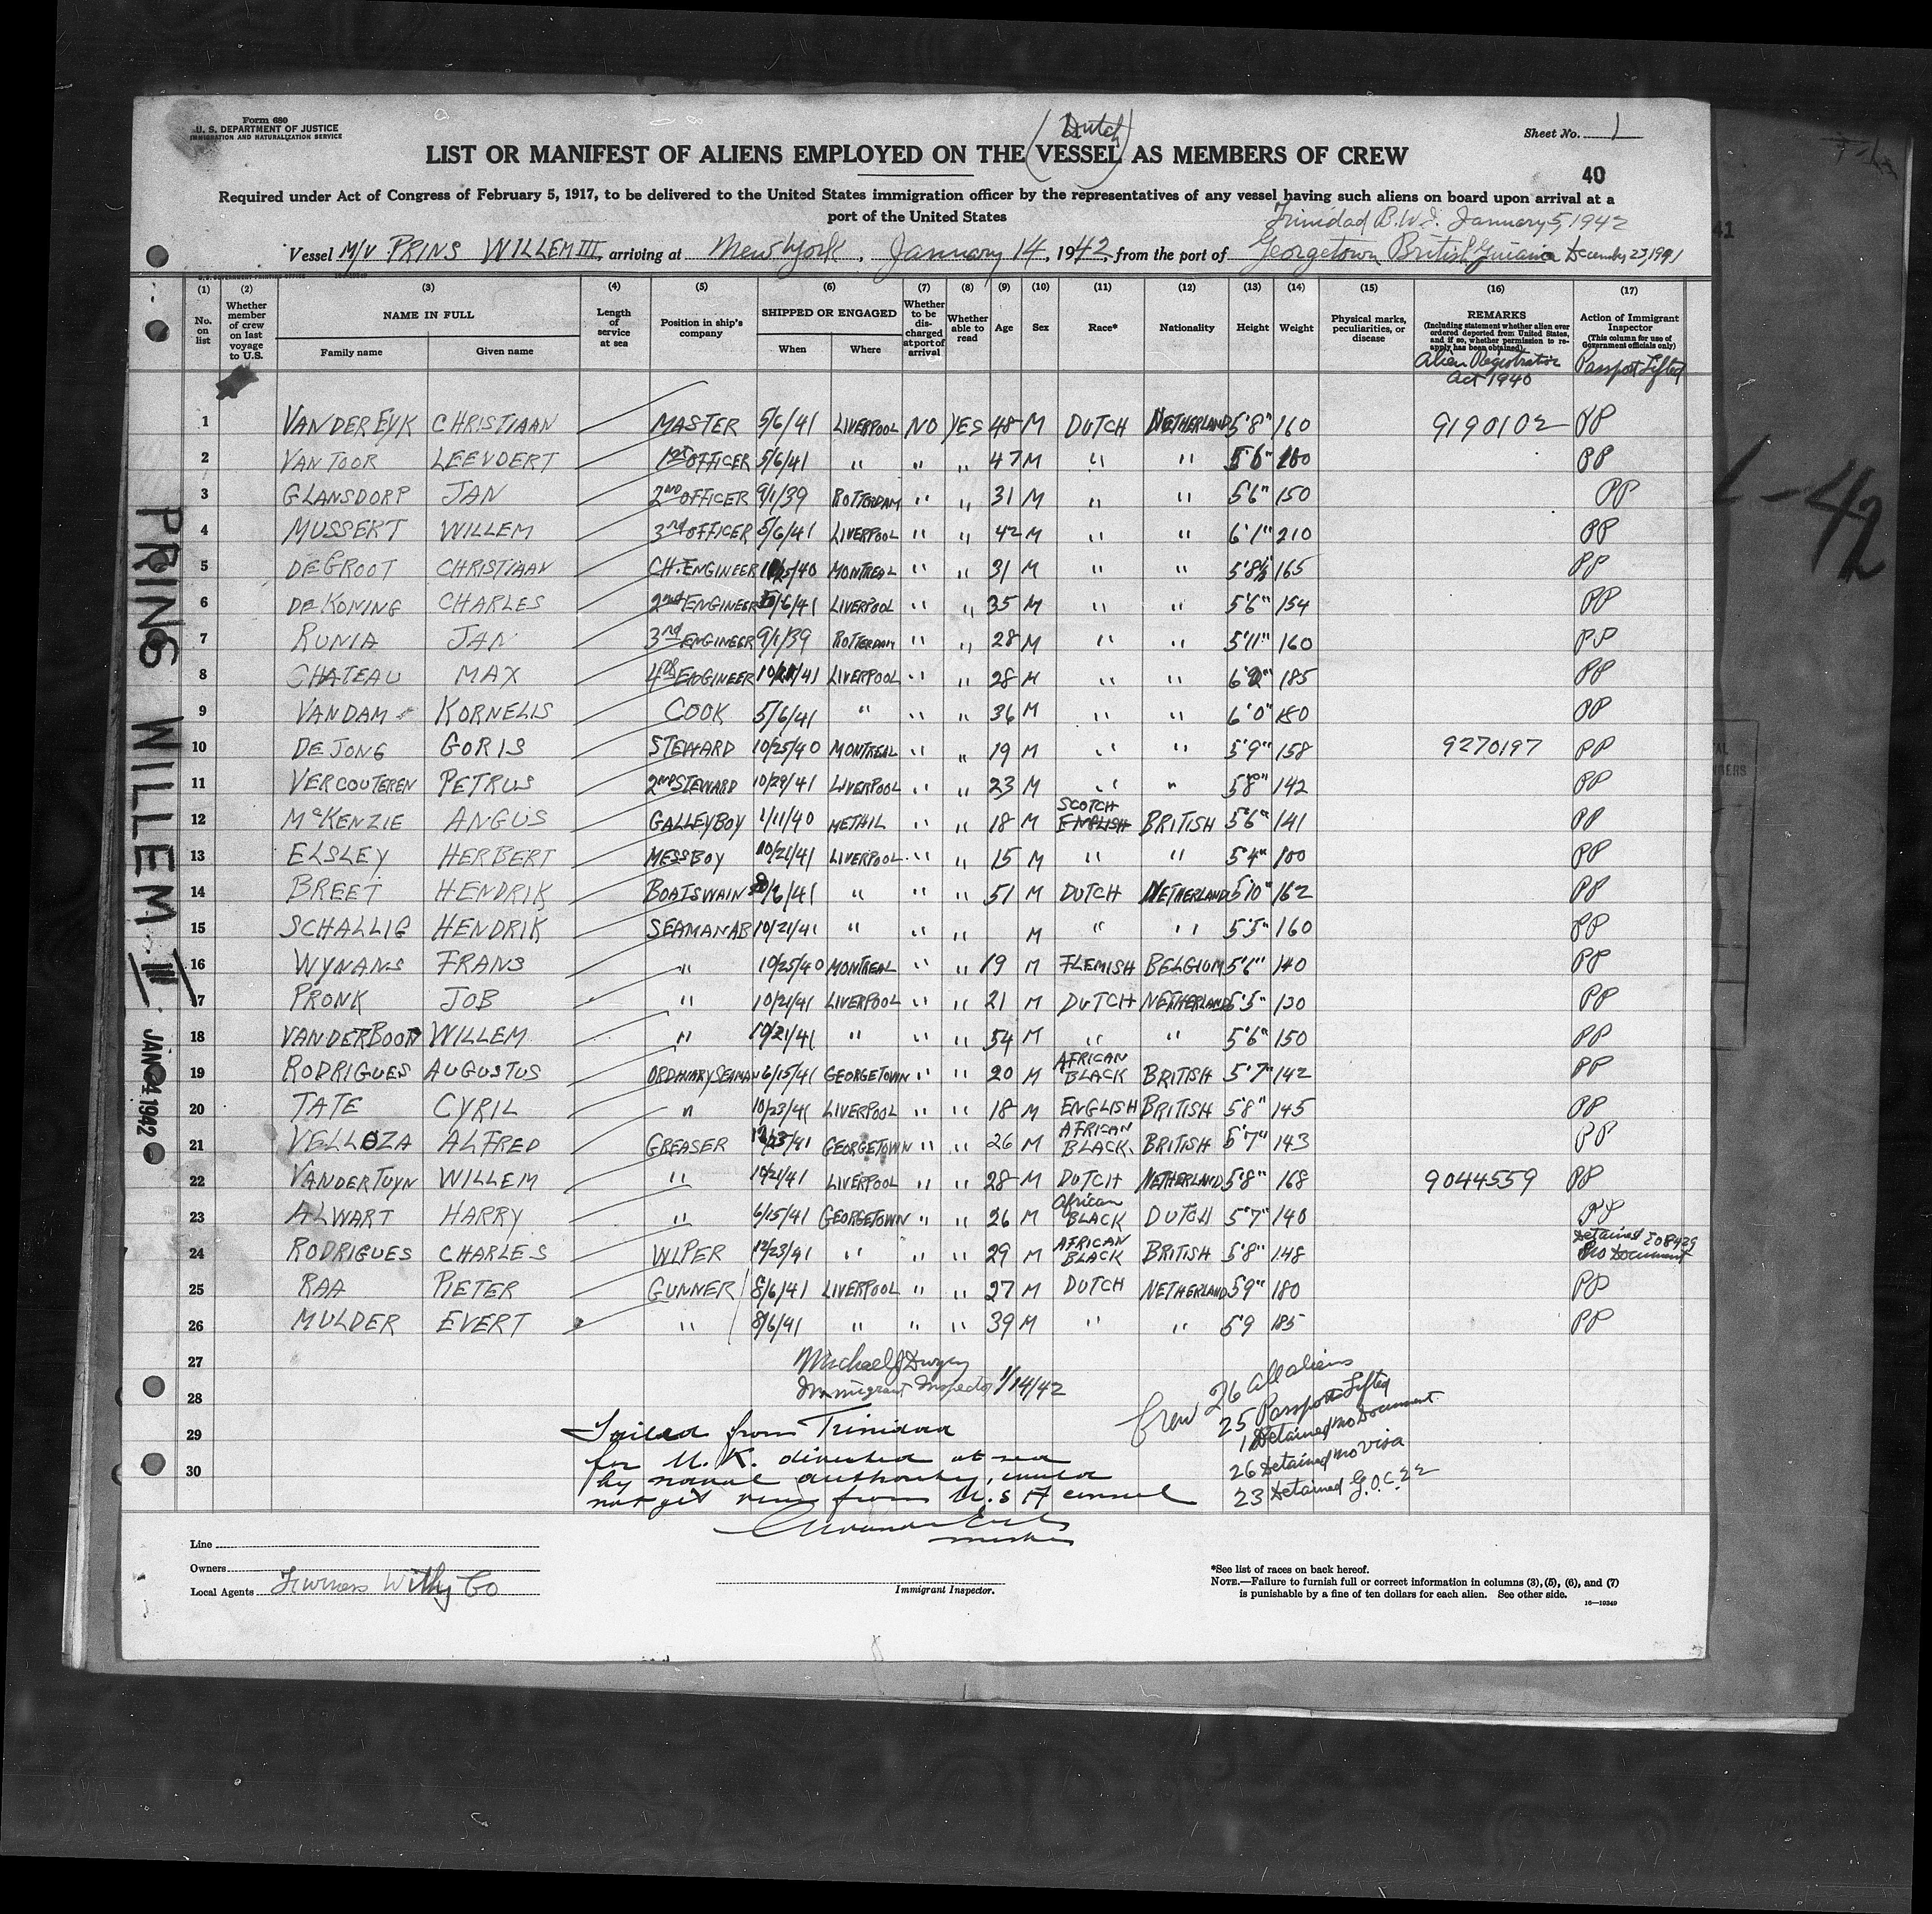 Form 680
U. S. DEPARTMENT OF JUSTICE
IMMIGRATION AND NATURALIZATION SERVICE
Sheet No. 1
(Dutch)
LIST OR MANIFEST OF ALIENS EMPLOYED ON THE VESSEL AS MEMBERS OF CREW
40
Required under Act of Congress of February 5, 1917, to be delivered to the United States immigration officer by the representatives of any vessel having such aliens on board upon arrival at a
port of the United States
Trinidad B.W.I. January 5, 1942
Vessel M/V PRINS WILLEM III, arriving at New York, January 14, 1942, from the port of Georgetown British Guiana December 23, 1941
(1) (2) (3) (4) (5) (6) (7) (8) (9) (10) (11) (12) (13) (14) (15) (16) (17)
No. on list
Whether member of crew on last voyage to U.S.
NAME IN FULL
Family name Given name
Length of service at sea
Position in ship's company
SHIPPED OR ENGAGED
When Where
Whether to be discharged at port of arrival
Whether able to read
Age Sex Race* Nationality Height Weight
Physical marks, peculiarities, or disease
REMARKS
(Including statement whether alien ever ordered deported from United States, and if so, whether permission to reapply has been obtained)
Alien Registration Act 1940
Action of Immigrant Inspector
(This column for use of Government officials only)
Passport Lifted
1 VAN DER EYK CHRISTIAAN MASTER 5/6/41 LIVERPOOL NO YES 48 M DUTCH NETHERLAND 5'8" 160 9190102 PP
2 VAN TOOR LEENDERT 1st OFFICER 5/6/41 " " " 47 M " " 5'6" PP
3 GLANSDORP JAN 2ND OFFICER 9/1/39 ROTTERDAM " " 31 M " " 5'6" 150 PP
4 MUSSERT WILLEM 3rd OFFICER 5/6/41 LIVERPOOL " " 42 M " " 6'1" 210 PP
5 DE GROOT CHRISTIAAN CH. ENGINEER MONTREAL " " 31 M " " 5'8½ 165 PP
6 DE KONING CHARLES 2nd ENGINEER 5/6/41 LIVERPOOL " " 35 M " " 5'6" 154 PP
7 RUNIA JAN 3rd ENGINEER 9/1/39 ROTTERDAM " " 28 M " " 5'11" 160 PP
8 CHATEAU MAX 4th ENGINEER 10/21/41 LIVERPOOL " " 28 M " " 6'2" 185 PP
9 VAN DAM KORNELIS COOK 5/6/41 " " " 36 M " " 6'0" 180 PP
10 DE JONG GORIS STEWARD 10/25/40 MONTREAL " " 19 M " " 5'9" 158 9270197 PP
11 VERCOUTEREN PETRUS 2ND STEWARD 10/29/41 LIVERPOOL " " 23 M " " 5'8" 142 PP
12 McKENZIE ANGUS GALLEY BOY 1/11/40 METHIL " " 18 M SCOTCH ENGLISH BRITISH 5'6" 141 PP
13 ELSLEY HERBERT MESS BOY 10/21/41 LIVERPOOL " " 15 M " " 5'4" 100 PP
14 BREET HENDRIK BOATSWAIN 8/6/41 " " " 51 M DUTCH NETHERLAND 5'10" 162 PP
15 SCHALLIG HENDRIK SEAMAN AB 10/21/41 " " " M " " 5'5" 160 PP
16 WYNANS FRANS " 10/25/40 MONTREAL " " 19 M FLEMISH BELGIUM 5'6" 140 PP
17 PRONK JOB " 10/21/41 LIVERPOOL " " 21 M DUTCH NETHERLAND 5'5" 130 PP
18 VAN DER BOOM WILLEM " 10/21/41 " " " 54 M " " 5'6" 150 PP
19 RODRIGUES AUGUSTUS ORDINARY SEAMAN 6/15/41 GEORGETOWN " " 20 M AFRICAN BLACK BRITISH 5'7" 142 PP
20 TATE CYRIL " 10/23/41 LIVERPOOL " " 18 M ENGLISH BRITISH 5'8" 145 PP
21 VELLOZA ALFRED GREASER 12/23/41 GEORGETOWN " " 26 M AFRICAN BLACK. BRITISH 5'7" 143 PP
22 VAN DER TUYN WILLEM " 10/21/41 LIVERPOOL " " 28 M DUTCH NETHERLAND 5'8" 168 9044559 PP
23 ALWART HARRY " 6/15/41 GEORGETOWN " " 26 M African BLACK DUTCH 5'7" 140 PP
24 RODRIGUES CHARLES WIPER 12/23/41 " " " 29 M AFRICAN BLACK BRITISH 5'8" 148 Detained No Document
25 RAA PIETER GUNNER 8/6/41 LIVERPOOL " " 27 M DUTCH NETHERLAND 5'9" 180 PP
26 MULDER EVERT " 8/6/41 " " " 39 M " " 5'9 185 PP
27
28
29
30
Michael J Dwyer
Immigrant Inspector 1/14/42
Crew 26 all aliens
25 Passport Lifted
1 Detained no Document
26 Detained no Visa
23 Detained G.O.C. 22
Sailed from Trinidad
for U.K. directed at sea
by naval authority, could
not get visa from U.S.A consul
master
Line
Owners
Local Agents Furness Withy Co
Immigrant Inspector.
*See list of races on back hereof.
NOTE.—Failure to furnish full or correct information in columns (3), (5), (6), and (7)
is punishable by a fine of ten dollars for each alien. See other side.
16—19349
PRINS WILLEM III
JAN 14 1942
41
-42